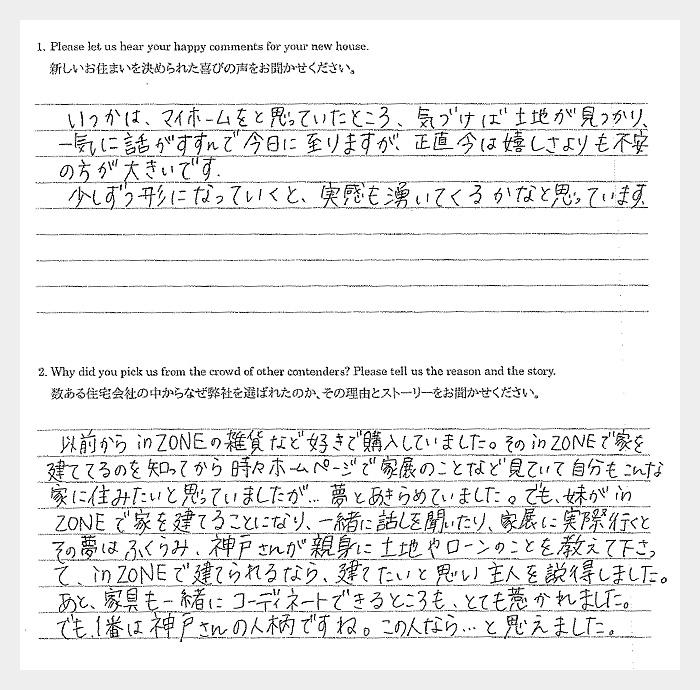 1. Please let us hear your happy comments for your new house.
新しいお住まいを決められた喜びの声をお聞かせください。
いつかは、マイホームをと思っていたところ、気づけば土地が見つかり、
一気に話がすすんで今日に至りますが、正直今は嬉しさよりも不安
の方が大きいです.
少しずつ形になっていくと、実感も湧いてくるかなと思っています.
2. Why did you pick us from the crowd of other contenders? Please tell us the reason and the story.
数ある住宅会社の中からなぜ弊社を選ばれたのか、その理由とストーリーをお聞かせください。
以前から in ZONEの雑貨など好きで購入していました。その in ZONEで家を
建ててるのを知ってから時々ホームページで家展のことなど見ていて自分もこんな
家に住みたいと思っていましたが… 夢とあきらめていました。でも、妹が in
ZONEで家を建てることになり、一緒に話しを聞いたり、家展に実際行くと
その夢はふくらみ、神戸さんが親身に土地やローンのことを教えて下さっ
て、in ZONEで建てられるなら、建てたいと思い主人を説得しました。
あと、家具も一緒にコーディネートできるところも、とても惹かれました。
でも、1番は神戸さんの人柄ですね。この人なら…と思えました。